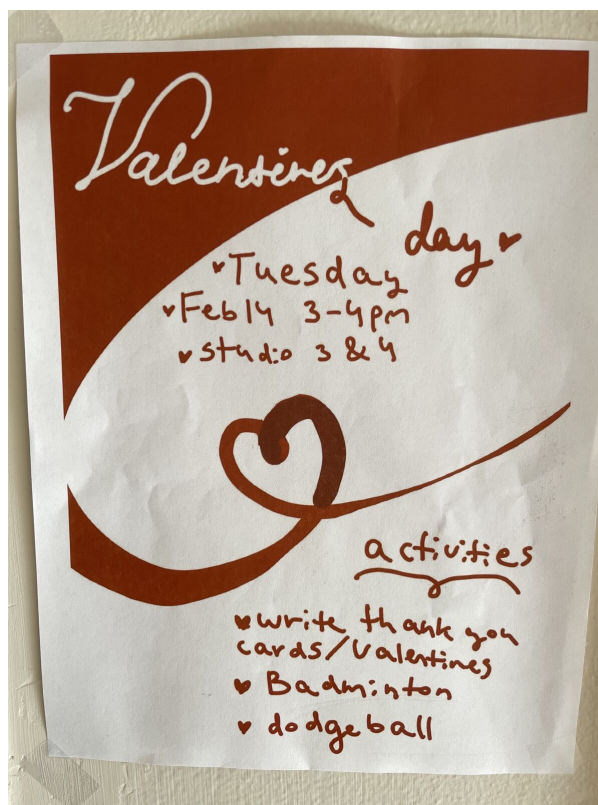 Valentines
day
Tuesday
Feb 14 3-4pm
studio 3 & 4
activities
write thank you
cards/Valentines
Badminton
dodgeball